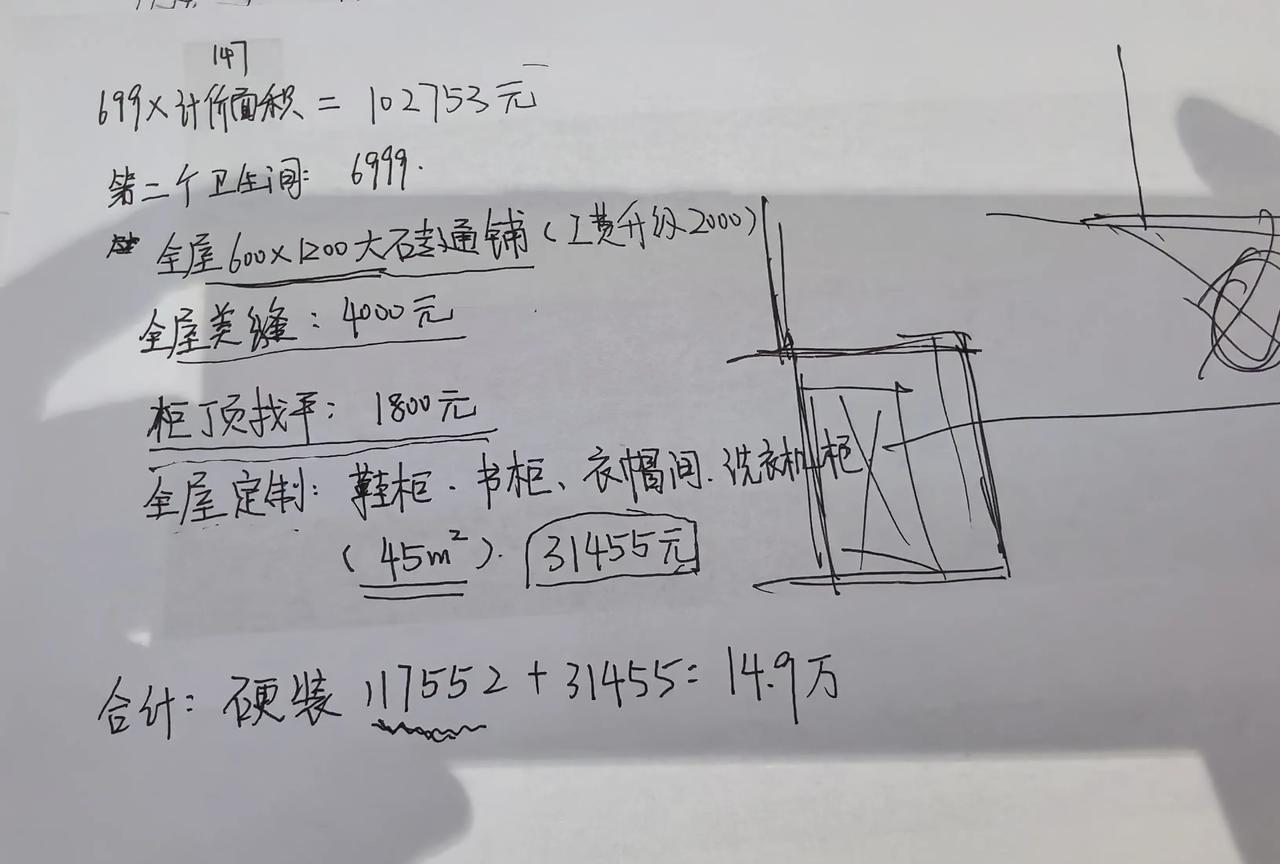 147
699×计价面积 = 102753元
第二个卫生间: 6999.
全屋600×1200大砖通铺(工费升级2000)
全屋美缝: 4000元
柜顶找平: 1800元
全屋定制: 鞋柜、书柜、衣帽间、洗衣机柜
(45m²). 31455元
合计: 硬装 117552 + 31455 = 14.9万